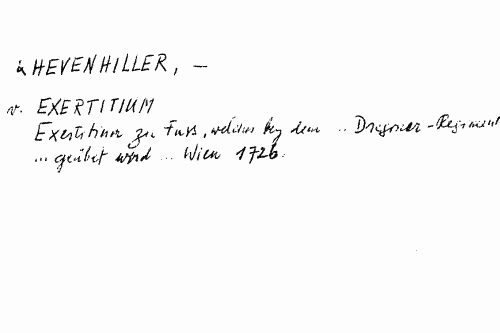 KHEVENHILLER, —
v. EXERTITIUM
Exertitium zu Fuss, welches bey dem .. Dragoner-Regiment
... geübet wird ... Wien 1726.